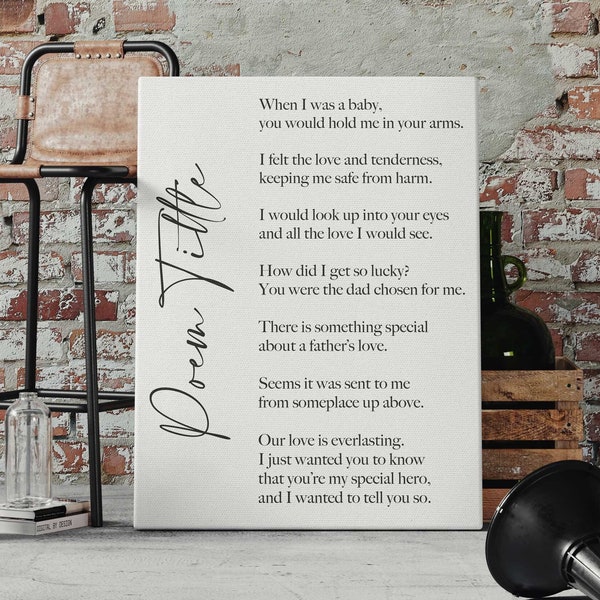 Poem Tittle
When I was a baby,
you would hold me in your arms.
I felt the love and tenderness,
keeping me safe from harm.
I would look up into your eyes
and all the love I would see.
How did I get so lucky?
You were the dad chosen for me.
There is something special
about a father's love.
Seems it was sent to me
from someplace up above.
Our love is everlasting.
I just wanted you to know
that you're my special hero,
and I wanted to tell you so.
DIGITAL BY DESIGN